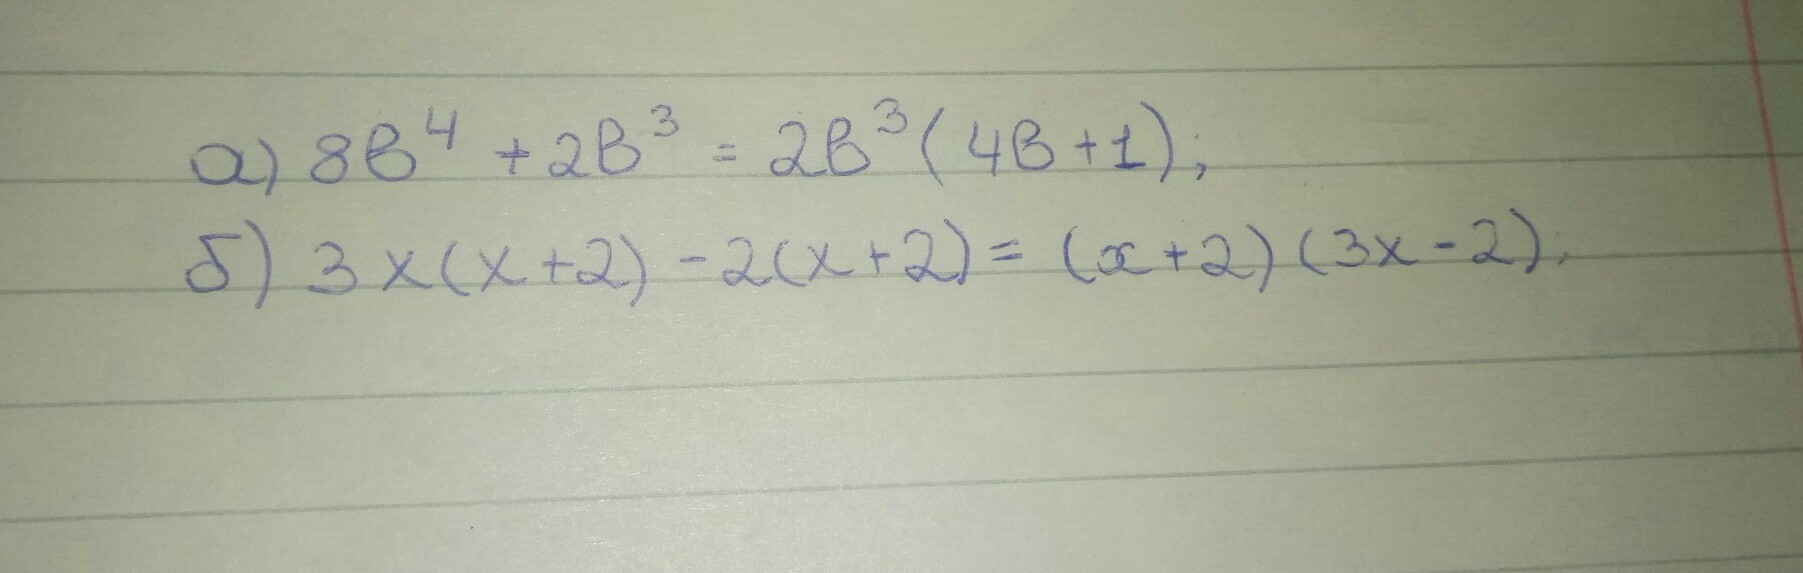 а) 8в⁴ + 2в³ = 2в³(4в+1);
б) 3x(x+2) - 2(x+2) = (x+2)(3x-2).